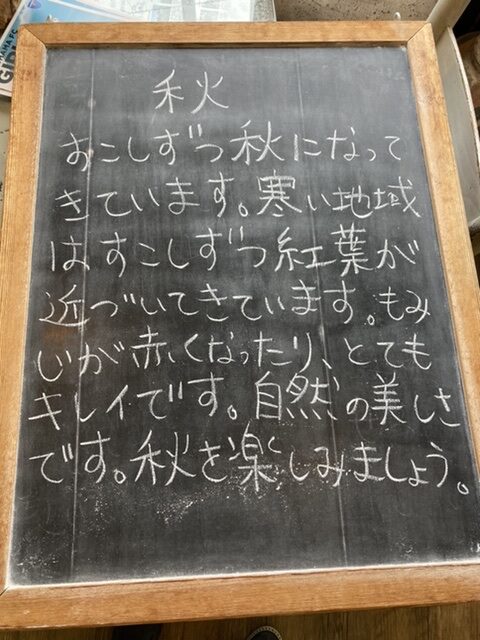 秋
おこしずつ秋になって
きています。寒い地域
はすこしずつ紅葉が
近づいてきています。もみ
じが赤くなったり、とても
キレイです。自然の美しさ
です。秋を楽しみましょう。